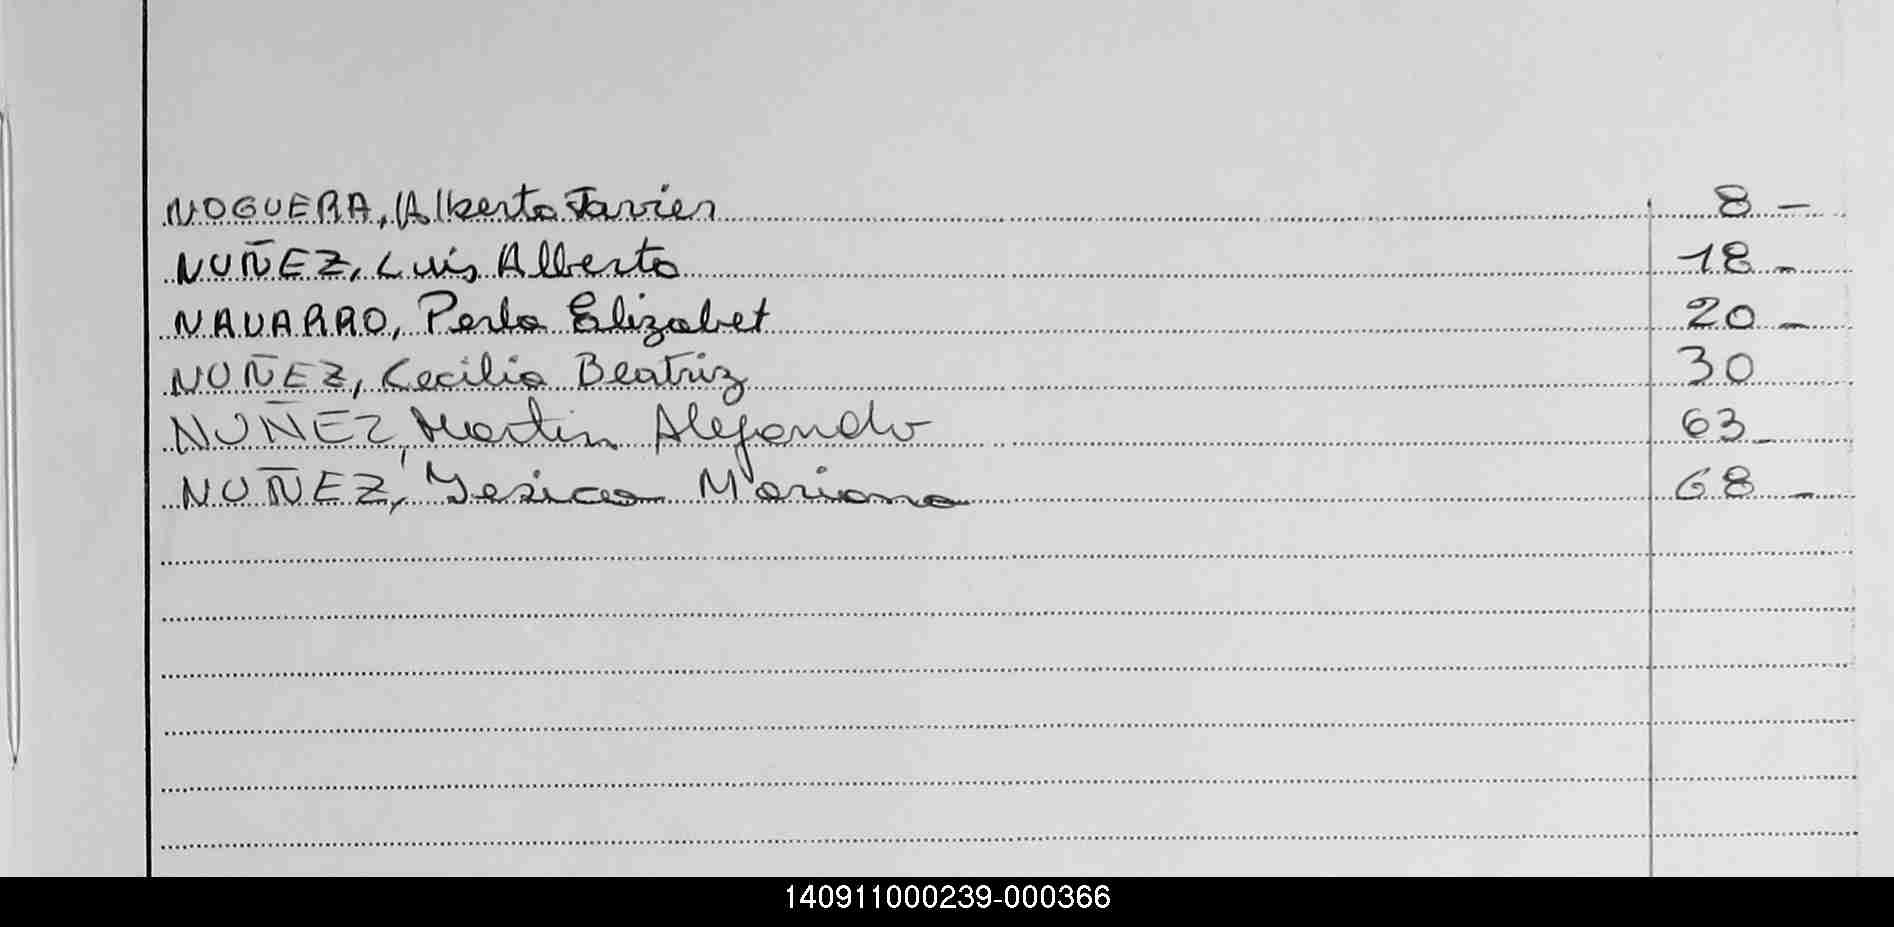 NOGUERA, Alberto Javier 8 -
NUÑEZ, Luis Alberto 18 -
NAVARRO, Perla Elizabet 20 -
NUÑEZ, Cecilia Beatriz 30
NUÑEZ, Martin Alejandro 63 -
NUÑEZ, Yesica Mariana 68 -
140911000239-000366